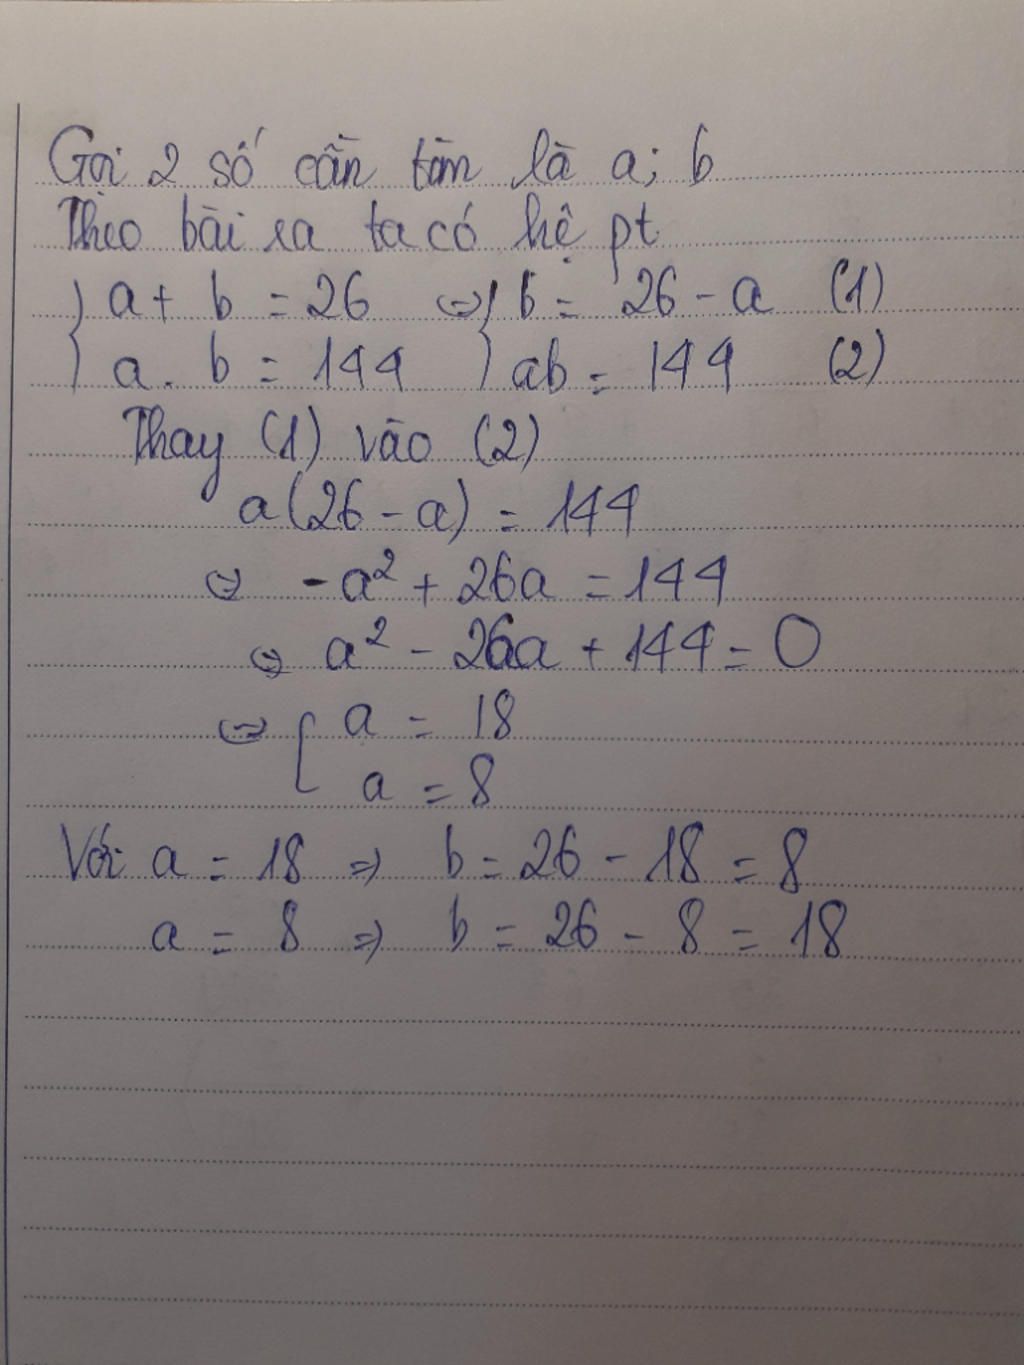 Gọi 2 số cần tìm là a; b
Theo bài ra ta có hệ pt
{ a + b = 26 <=> { b = 26 - a (1)
{ a . b = 144 { ab = 144 (2)
Thay (1) vào (2)
a(26 - a) = 144
<=> -a² + 26a = 144
<=> a² - 26a + 144 = 0
<=> [ a = 18
a = 8
Với a = 18 => b = 26 - 18 = 8
a = 8 => b = 26 - 8 = 18